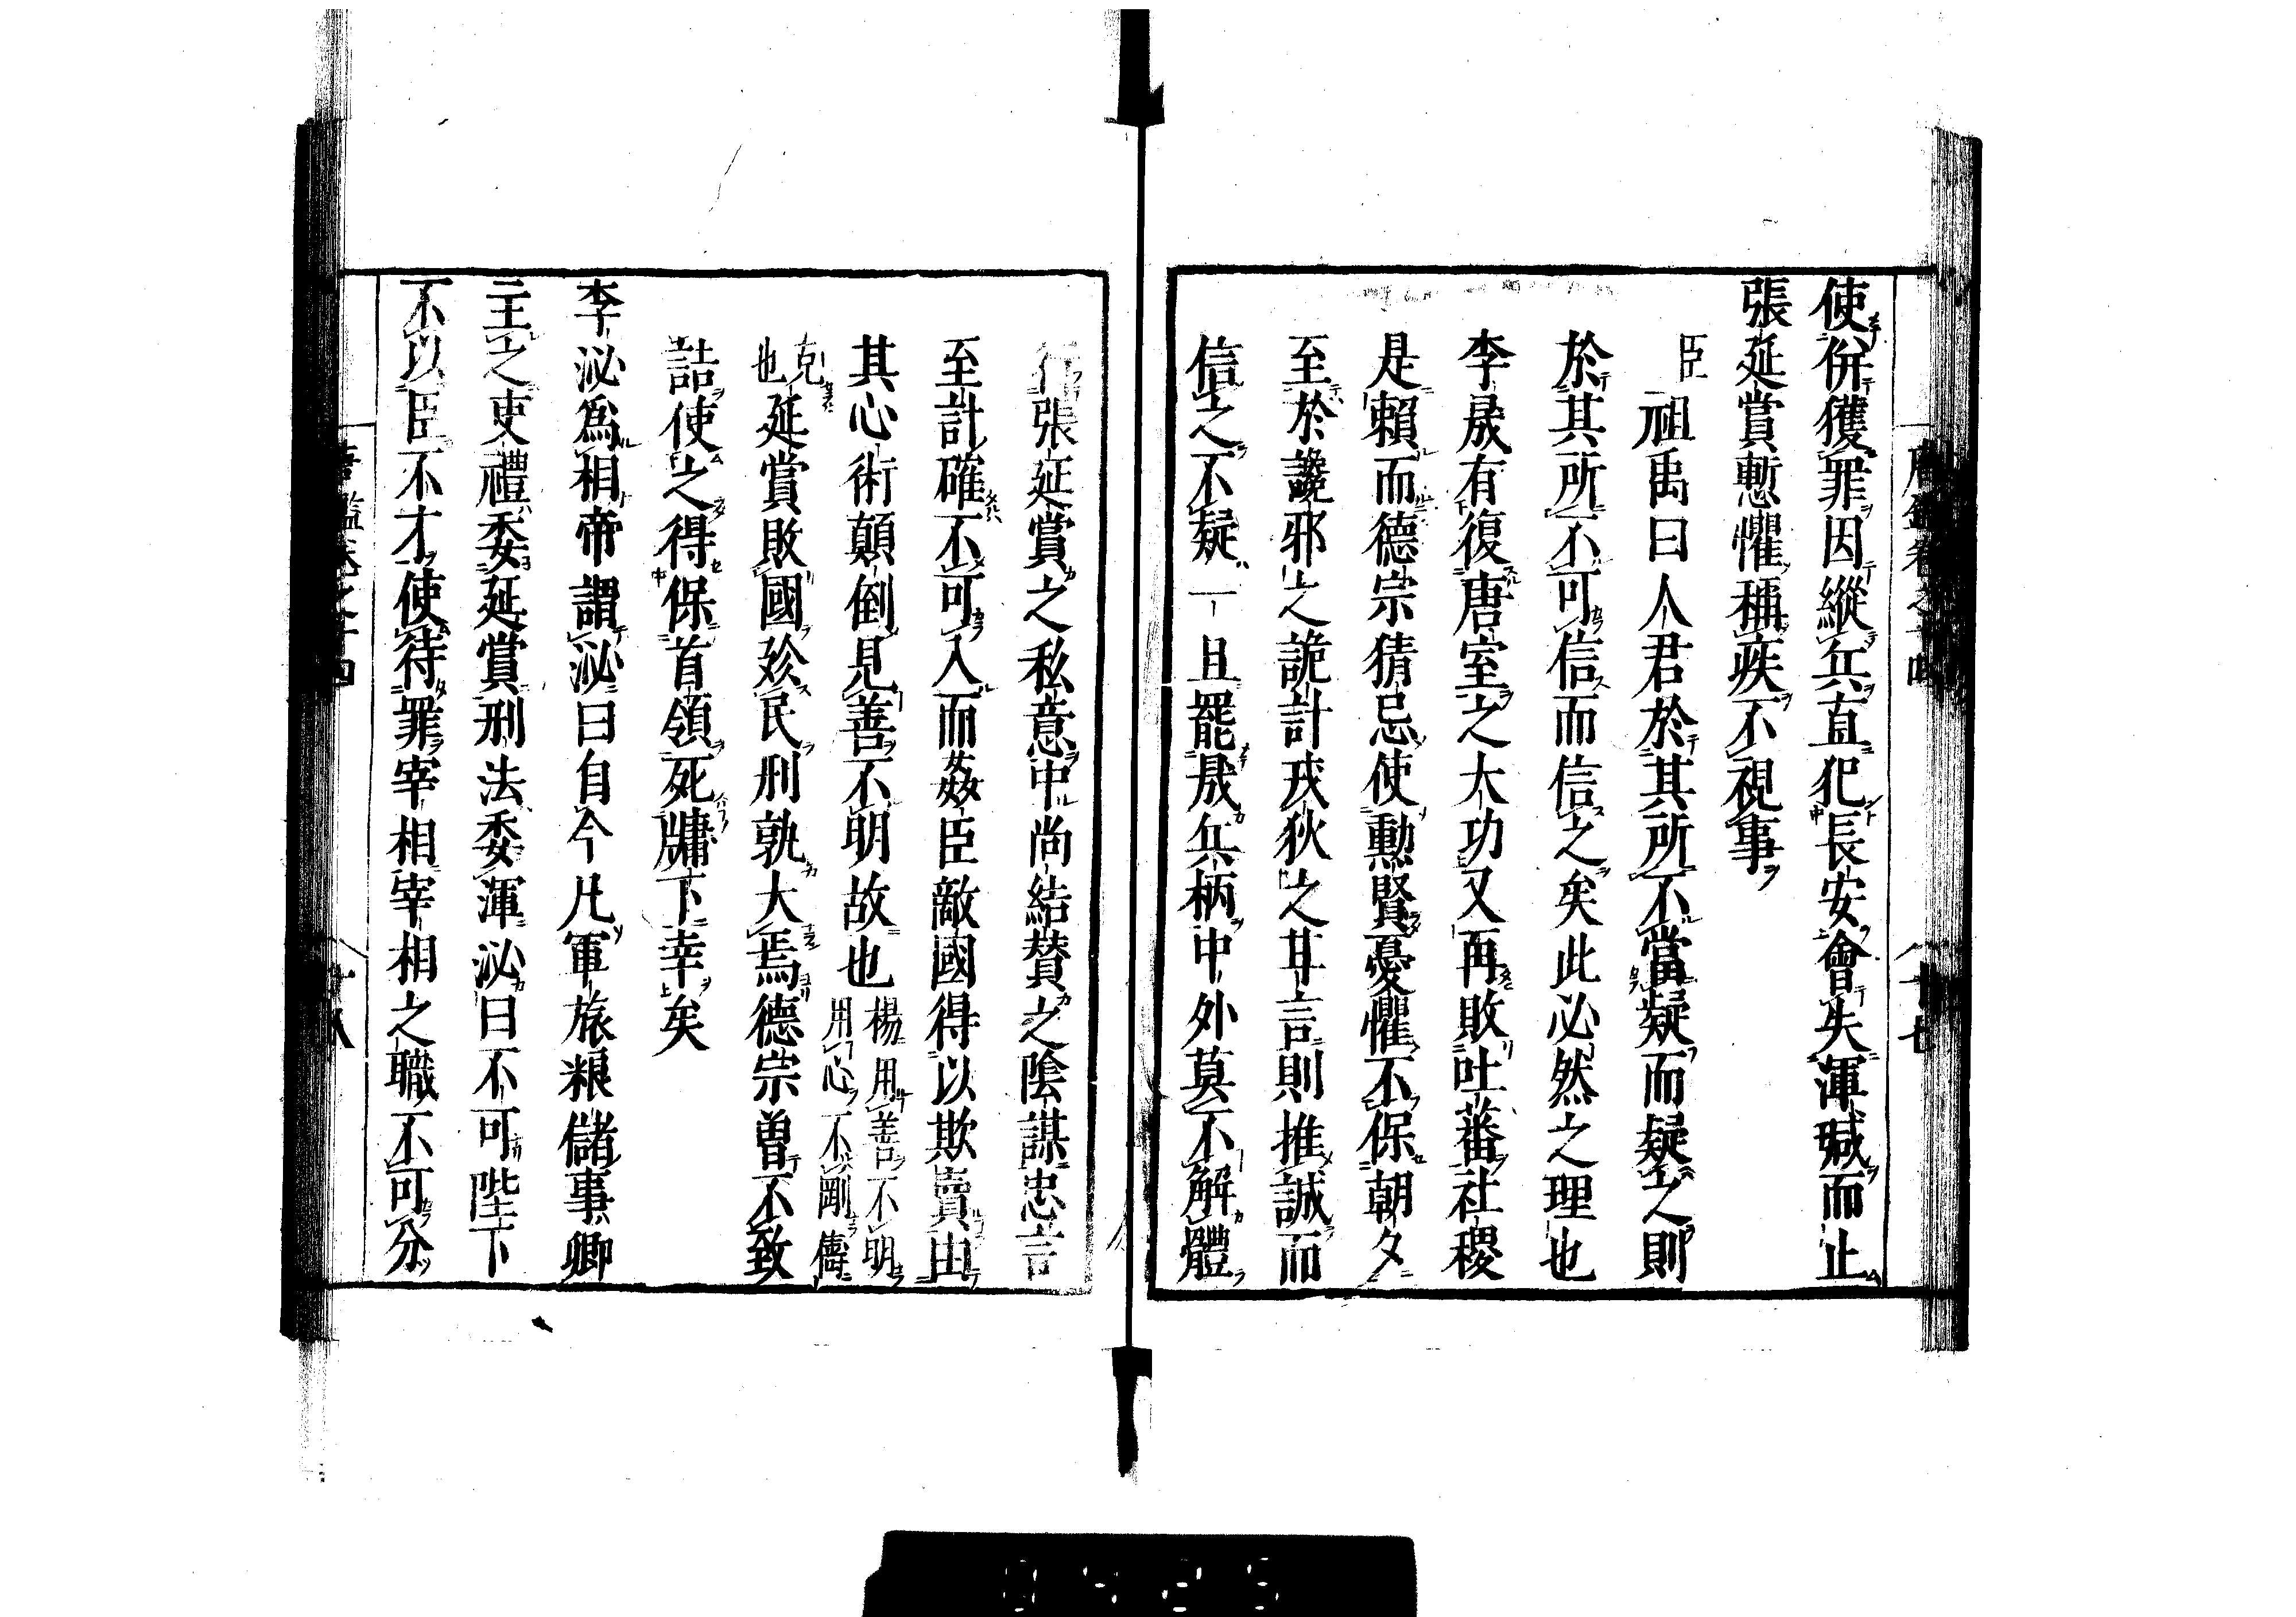 使併獲罪因縱兵直犯長安會失渾瑊而止
張延賞慙懼稱疾不視事
臣祖禹曰人君於其所不當疑而疑之則
於其所不可信而信之矣此必然之理也
李晟有復唐室之大功又再敗吐蕃社稷
是賴而德宗猜忌使勳賢憂懼不保朝夕
至於讒邪之詭計戎狄之甘言則推誠而
信之不疑一旦罷晟兵柄中外莫不解體
行張延賞之私意中尚結贊之陰謀忠言
至計確不可入而姦臣敵國得以欺賣由
其心術顛倒見善不明故也楊用善不明用心不剛儁
克也延賞敗國殄民刑孰大焉德宗曾不致
詰使之得保首領死牗下幸矣
李泌爲相帝謂泌曰自今凡軍旅粮儲事卿
主之吏禮委延賞刑法委渾泌曰不可陛下
不以臣不才使待罪宰相宰相之職不可分